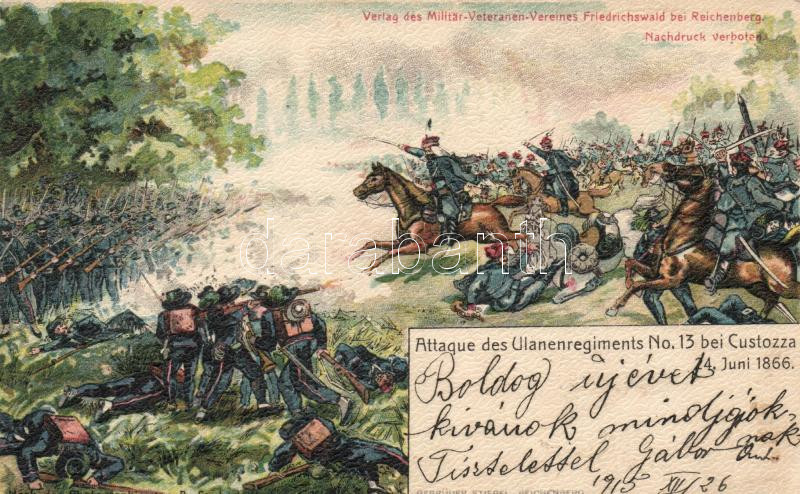 Verlag des Militär-Veteranen-Vereines Friedrichswald bei Reichenberg.
Nachdruck verboten.
darabanth
Attaque des Ulanenregiments No. 13 bei Custozza
24. Juni 1866.
Boldog újévet
kivánok mindjgök-
nak
Tisztelettel Gábor
GEBRÜDER STIEPEL, REICHENBERG
1915 XII/26